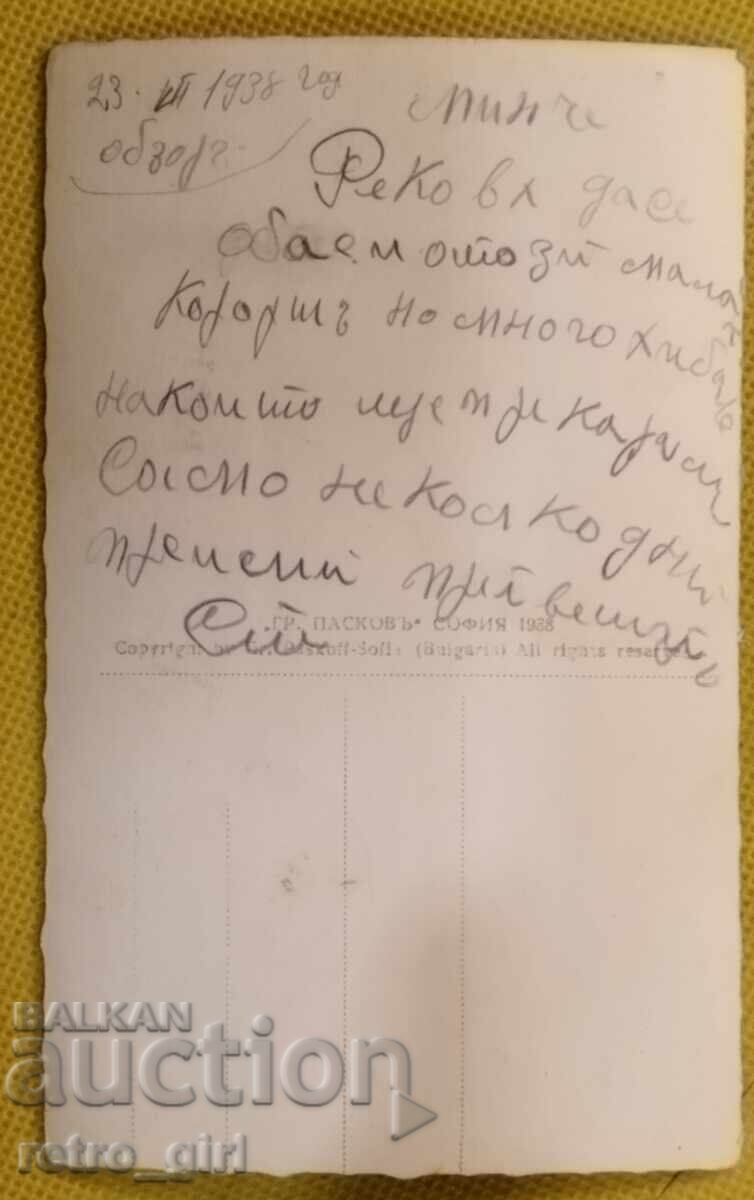 23. VII 1938 год
обзор
Минче
Рекова да се
обаем от този малък
корортъ но много хибавъ
на който ще прекарам
само неколко дни
"ГР. ПАСКОВЪ" СОФИЯ 1938
Copyright by Gr. Paskoff-Sofia (Bulgaria) All rights reserved
BALKAN
auction
retro_girl